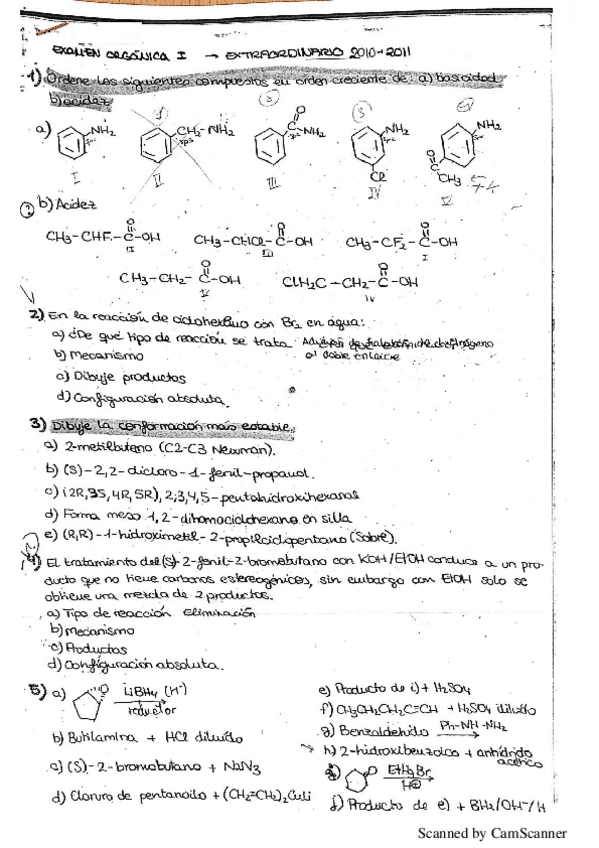 EXAMEN ORGÁNICA I → EXTRAORDINARIO 2010-2011
1) Ordene los siguientes compuestos en orden creciente de: a) basicidad
b) acidez
a) NH2 CH2-NH2 O C NH2 NH2 NH2
I II III Cl IV O C CH3 V
b) Acidez
CH3-CHF-C-OH CH3-CHCl-C-OH CH3-CF2-C-OH
II III I
CH3-CH2-C-OH ClH2C-CH2-C-OH
V IV
2) En la reacción de ciclohexeno con Br2 en agua:
a) ¿De qué tipo de reacción se trata. al doble enlace
b) Mecanismo
c) Dibuje productos
d) Configuración absoluta.
3) Dibuje la conformación más estable.
a) 2-metilbutano (C2-C3 Newman).
b) (S)-2,2-dicloro-1-fenil-propanol.
c) (2R,3S,4R,5R), 2,3,4,5-pentahidroxihexanal
d) Forma meso 1,2-dibromociclohexano en silla
e) (R,R)-1-hidroximetil-2-propilciclopentano (Sobre).
4) El tratamiento del (S)-2-fenil-2-bromobutano con KOH/EtOH conduce a un pro-
ducto que no tiene carbonos estereogénicos, sin embargo con EtOH solo se
obtiene una mezcla de 2 productos.
a) Tipo de reacción Eliminación
b) mecanismo
c) Productos
d) Configuración absoluta.
5) a) O LiBH4 (H-) reductor
b) Butilamina + HCl diluído
c) (S)-2-bromobutano + NaN3
d) Cloruro de pentanoilo + (CH2=CH2)2CuLi
e) Producto de i) + H2SO4
f) CH3CH2CH2C≡CH + H2SO4 diluído
g) Benzaldehído Ph-NH-NH2
h) 2-hidroxibenzoico + anhídrido
acético
O EtMgBr H⊕
j) Producto de e) + BH3/OH-/H
Scanned by CamScanner